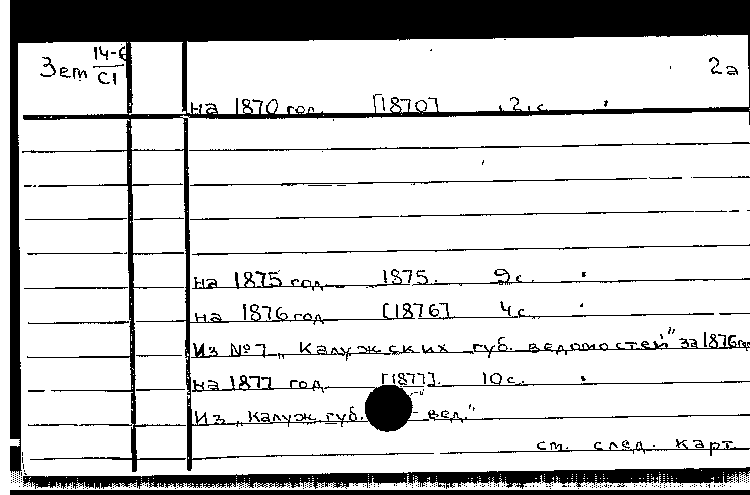 Зет 14-6
С1
2а
на 1870 год. [1870] 2 с.
на 1875 год 1875. 9 с.
на 1876 год [1876] 4 с.
Из № 7 „Калужских губ. ведомостей" за 1876 год
на 1877 год. [1877]. 10 с.
Из „Калуж. губ. вед."
см. след. карт